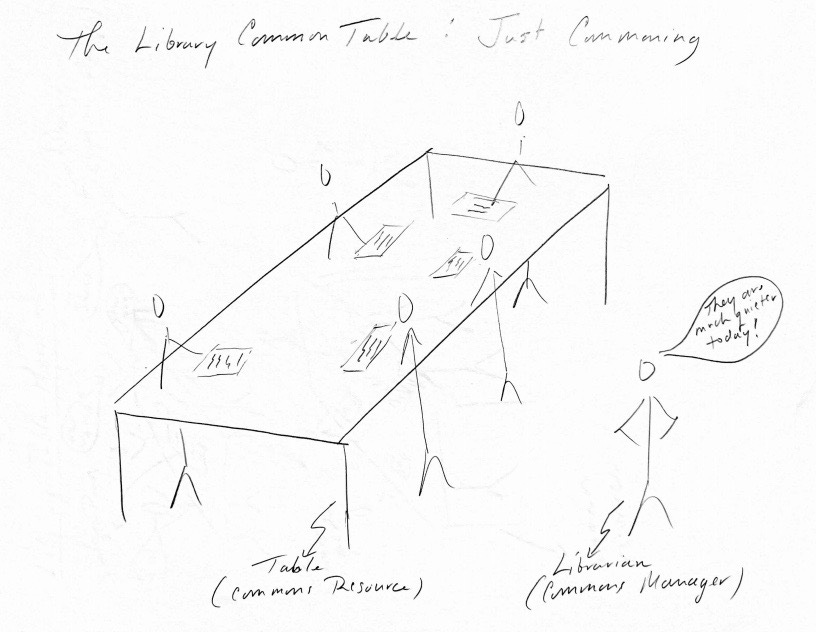 The Library Common Table : Just Commoning
They are
much quieter
today!
Table
(Commons Resource)
Librarian
(Commons Manager)